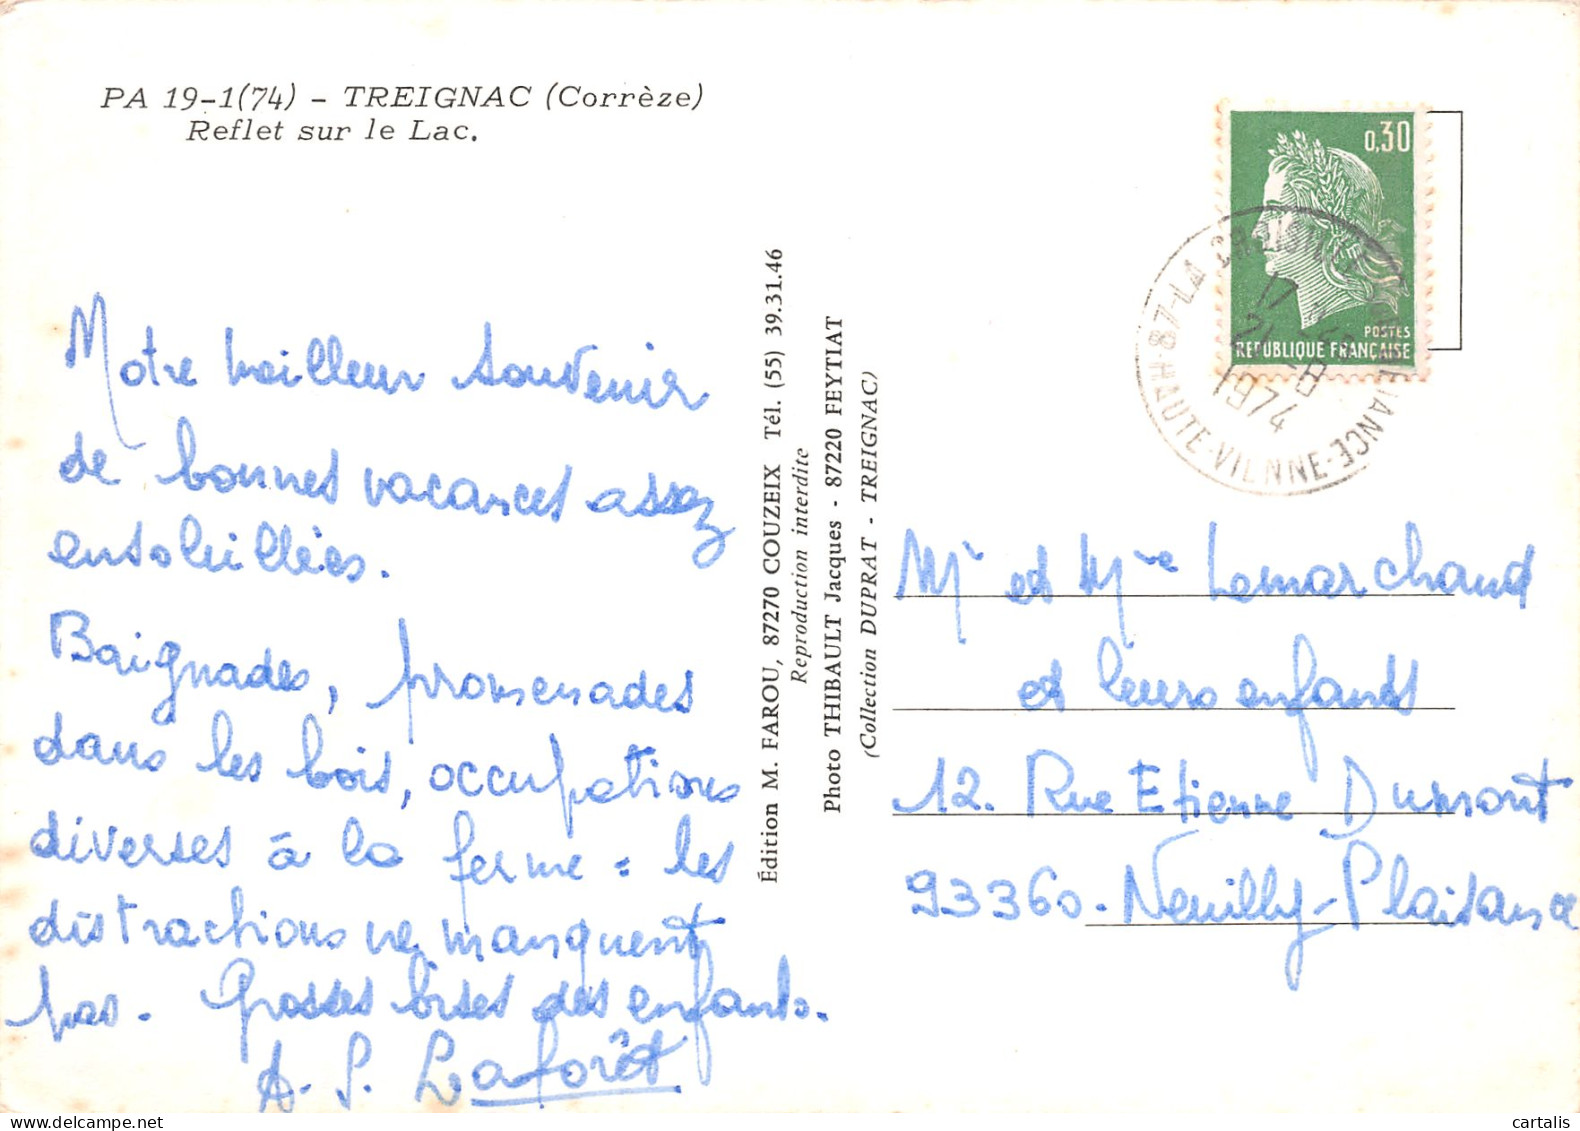 PA 19-1(74) - TREIGNAC (Corrèze)
Reflet sur le Lac.
Notre meilleur souvenir
de bonnes vacances assez
ensoleillées.
Baignades, promenades
dans les bois, occupations
diverses à la ferme : les
distractions ne manquent
pas. Grosses bises des enfants.
A. S. Laforêt
Édition M. FAROU, 87270 COUZEIX Tél. (55) 39.31.46
Reproduction interdite
Photo THIBAULT Jacques - 87220 FEYTIAT
(Collection DUPRAT - TREIGNAC)
0,30
POSTES
REPUBLIQUE FRANÇAISE
87-LA CROISILLE
HAUTE-VIENNE
17
21-8
1974
Mr et Mme Lemarchand
et leurs enfants
12. Rue Etienne Dumont
93360. Neuilly-Plaisance
cartalis